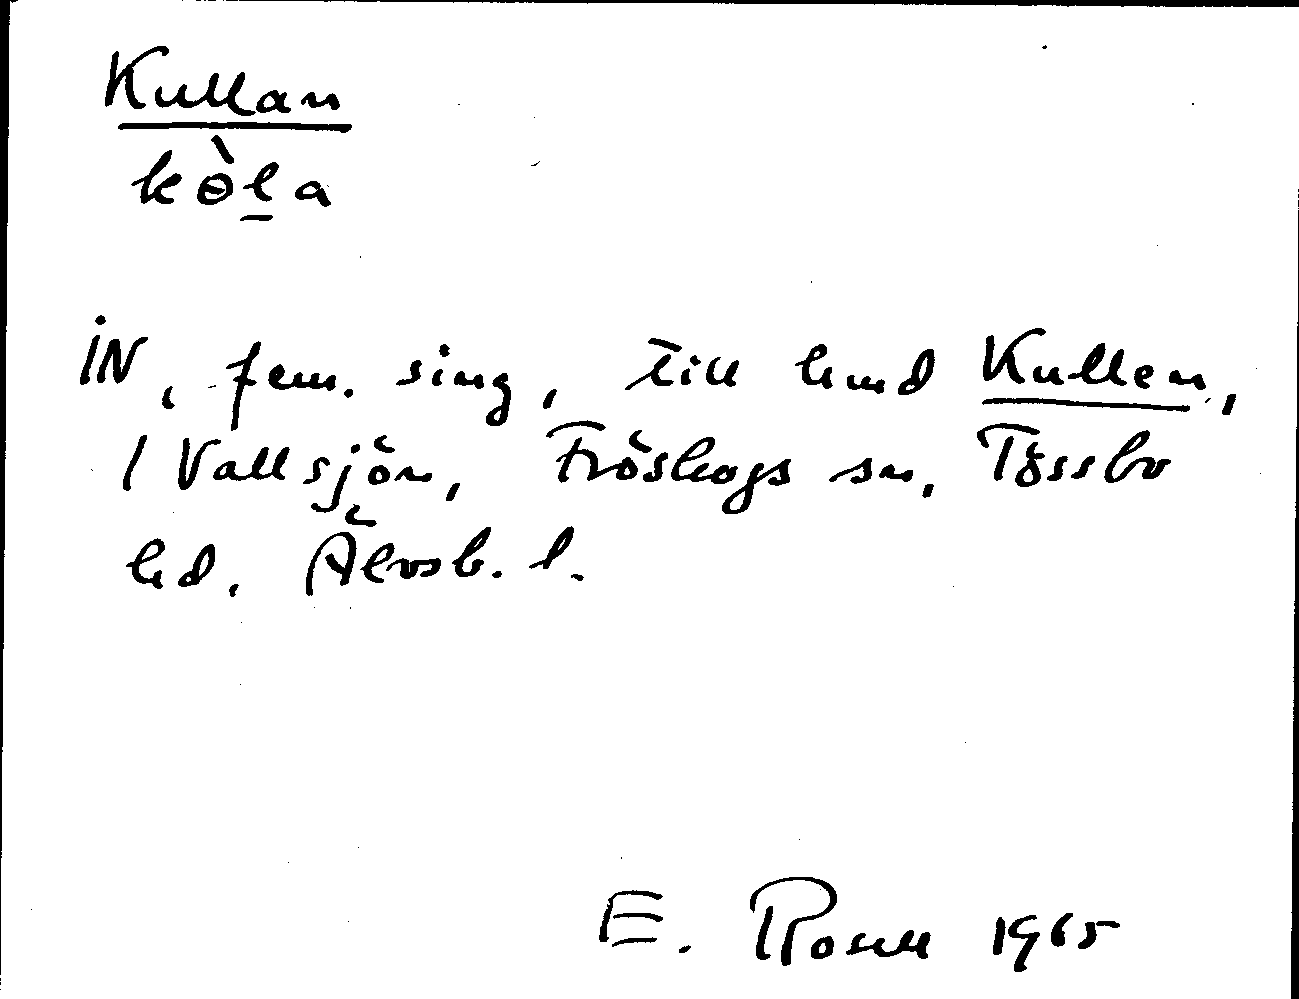 Kullan
kɵ̀l̲a
IN, fem. sing, till hmd Kullen,
/ Vallsjön, Fröskogs sn, Tössbo
hd. Älvsb. l.
E. Rosell 1965